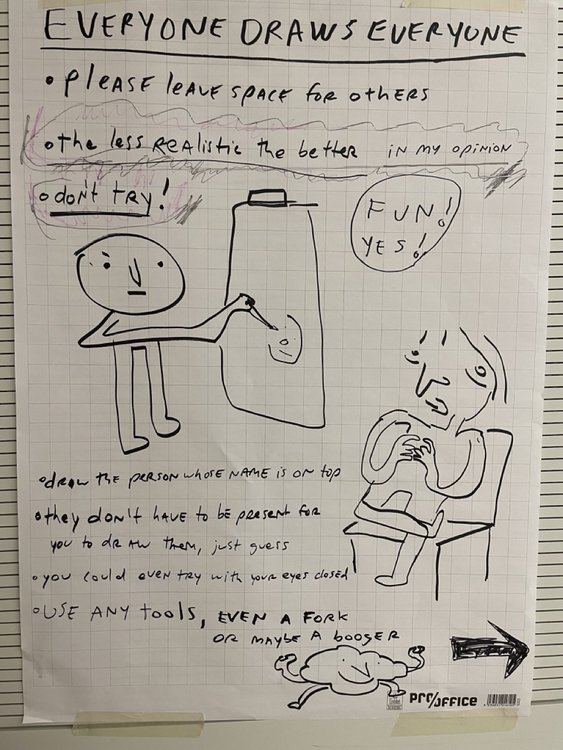 EVERYONE DRAWS EVERYONE
• PLEASE LEAVE SPACE FOR OTHERS
• the less REALISTIC the better IN MY OPINION
• DON'T TRY!
FUN!
YES!
• DRAW the PERSON WHOSE NAME IS ON TOP
• they DON'T HAVE to BE PRESENT FOR
YOU to DRAW tHEM, just guess
• YOU COULD EVEN TRY with YOUR EYES CLOSED
• USE ANY tools, EVEN A FORK
OR MAYBE A BOOGER
PRO/OFFICE